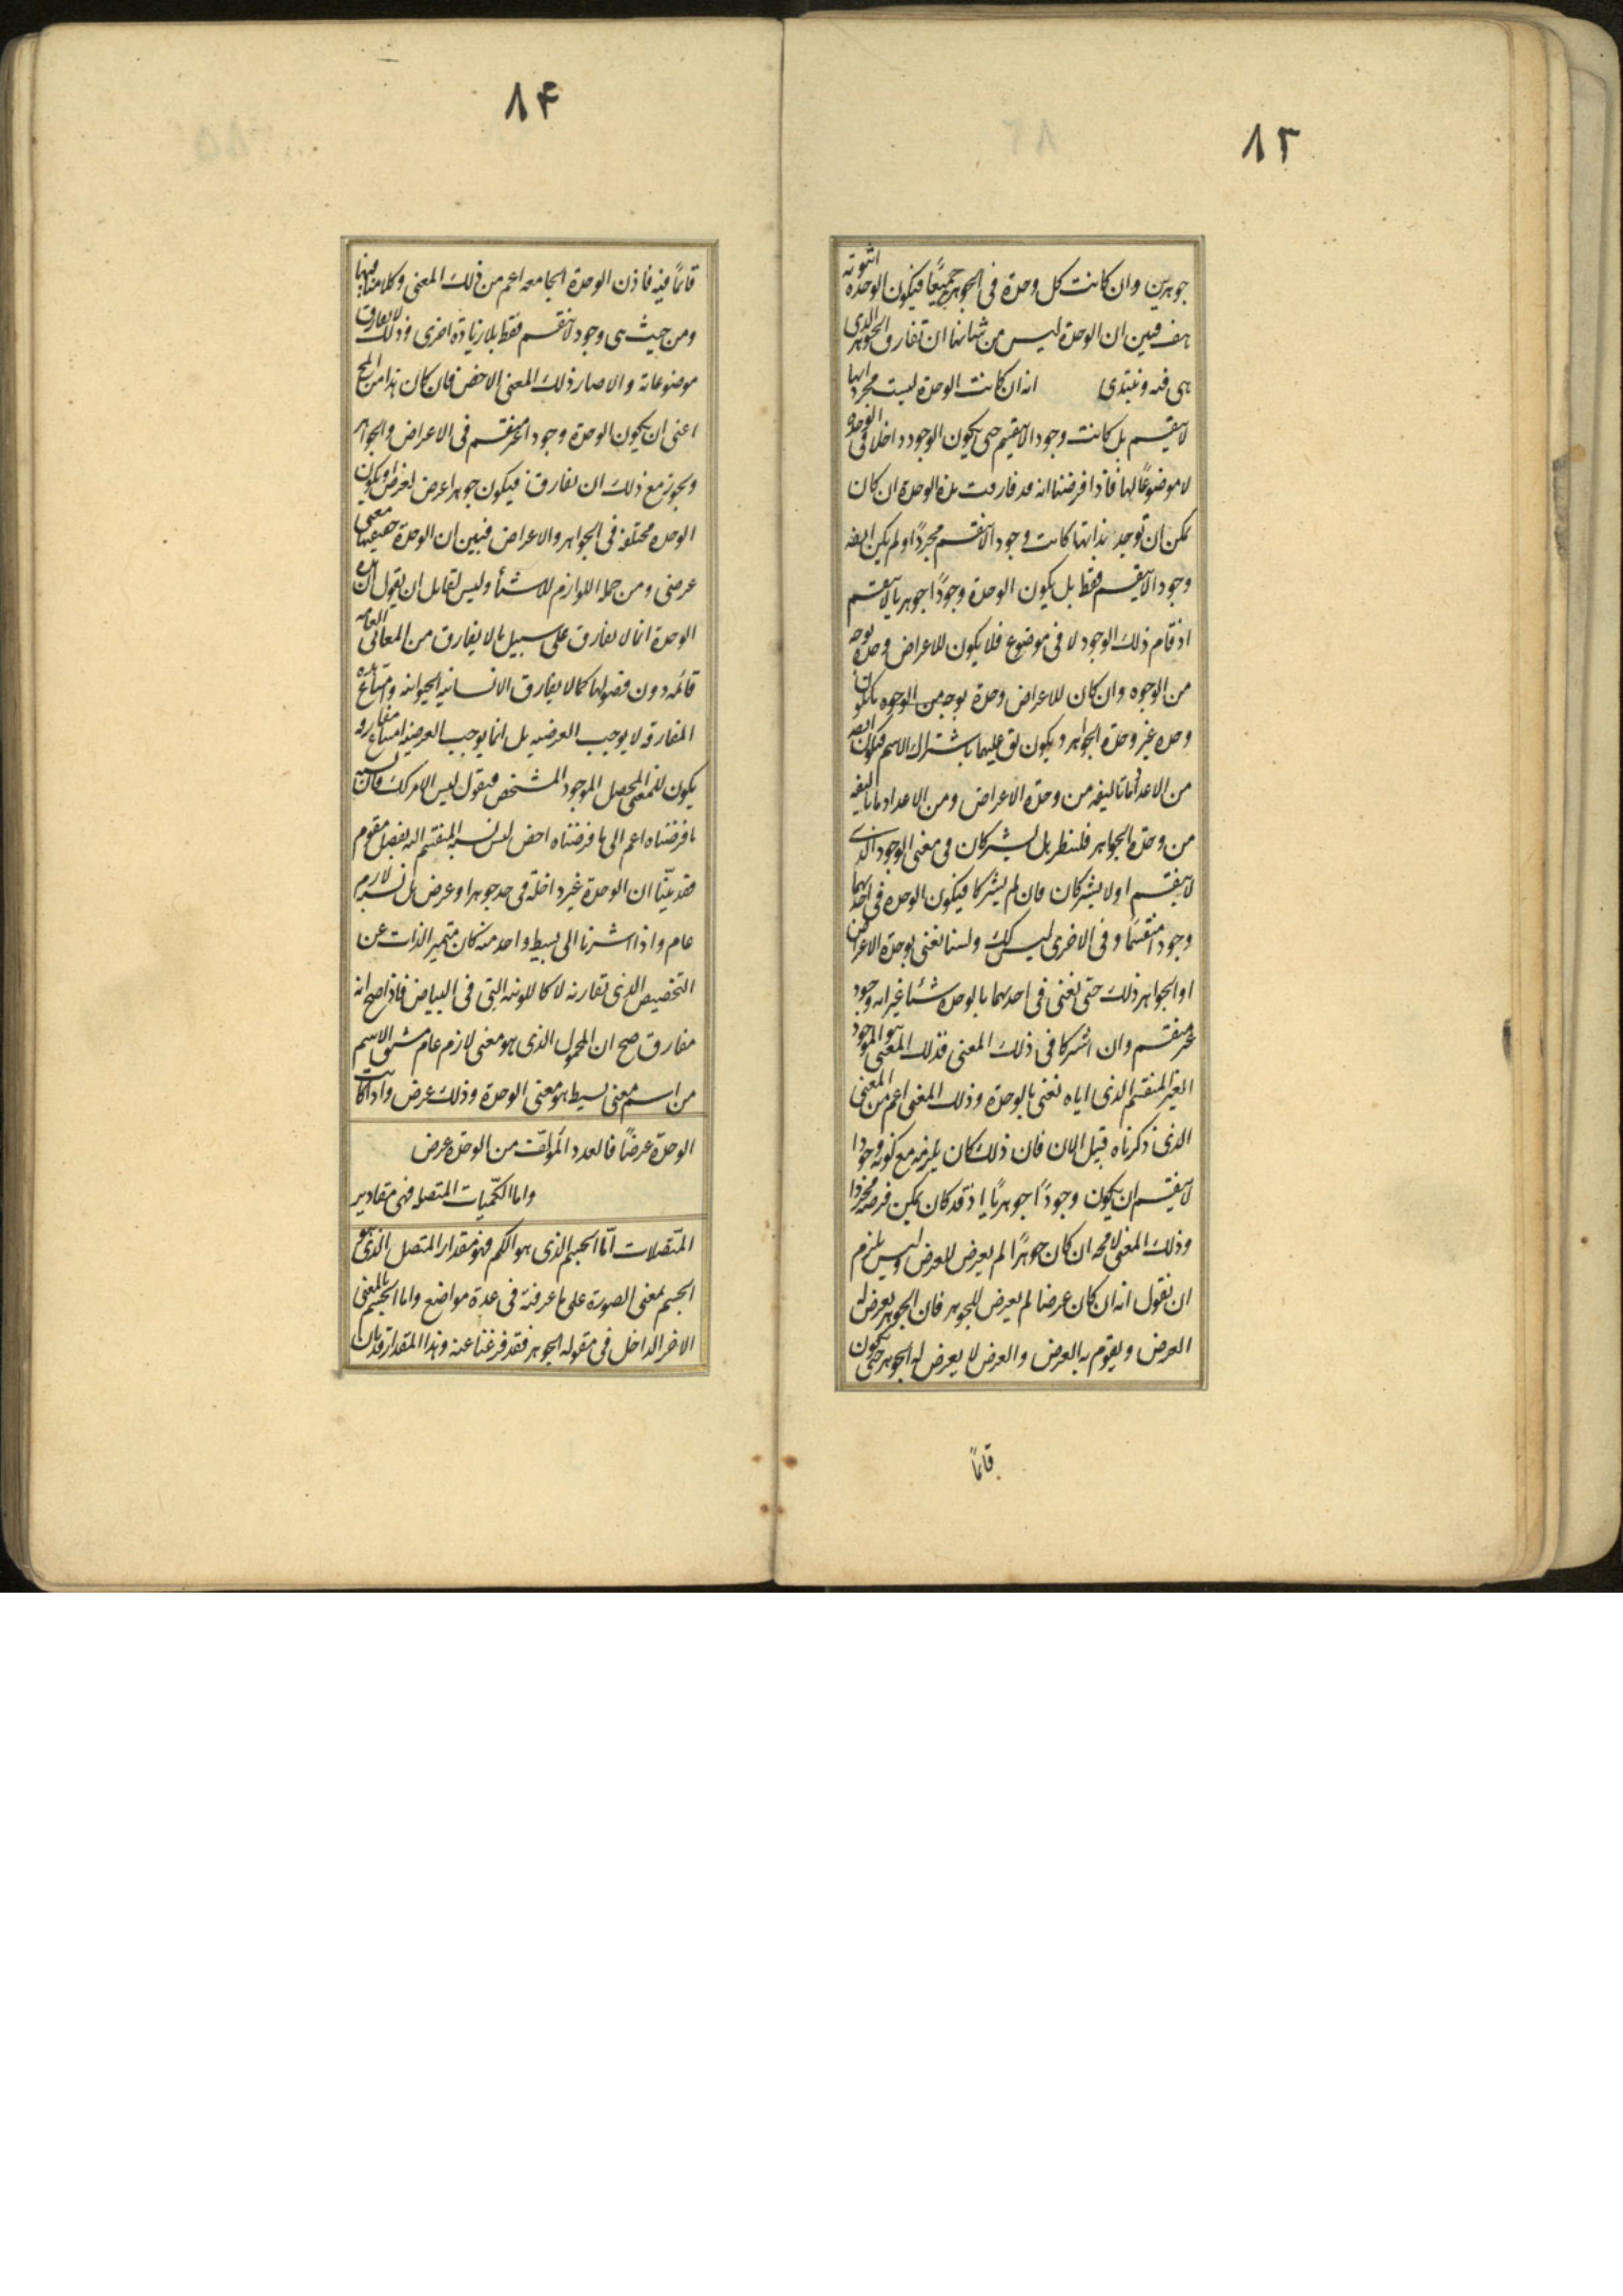 ٨٣
جوهرين وان كانت كل وحدة فى الجوهرين جميعًا فيكون الوحدة اثنوته
هف فبين ان الوحدة ليس من شانها ان تفارق الجوهر الذى
هى فيه ونبتدى انه ان كانت الوحدة ليست مجرد انها
لا ينقسم بل كانت وجودا لا ينقسم حتى يكون الوجود داخلا فى الوحدة
لا موضوعًا لها فاذا فرضنا انه قد فارقت هذه الوحدة ان كان
يمكن ان توجد بذاتها كانت وجودا لا ينقسم مجردًا ولم يكن ايضه
وجودا لا ينقسم فقط بل يكون الوحدة وجودًا جوهريا لا ينقسم
اذ قام ذلك الوجود لا فى موضوع فلا يكون للاعراض وحدة بوجه
من الوجوه وان كان للاعراض وحدة بوجه من الوجوه يكون
وحدة غير وحدة الجواهر ويكون يق عليهما باشتراك الاسم فيكون ايضه
من الاعداد ما تاليفه من وحدة الاعراض ومن الاعداد ما تاليفه
من وحدة الجواهر فلننظر هل يشتركان فى معنى الوجود الذى
لا ينقسم او لا يشتركان فان لم يشتركا فيكون الوحدة فى احديهما
وجودا منقسمًا وفى الاخرى ليس كك ولسنا نعنى بوحدة الاعراض
او الجواهر ذلك حتى نعنى فى احديهما بالوحدة شئيا غير انه وجود
غير منقسم وان اشتركا فى ذلك المعنى فذلك المعنى هو الموجود
الغير المنقسم الذى اياه نعنى بالوحدة وذلك المعنى اعم من المعنى
الذى ذكرناه قبيل الان فان ذلك كان يلزمه مع كونه وجودا
لا ينقسم ان يكون وجودًا جوهريًا اذ قد كان يمكن فرضه مجردا
وذلك المعنى لا محه ان كان جوهرًا لم يعرض للعرض وليس يلزم
ان نقول انه ان كان عرضا لم يعرض للجوهر فان الجوهر يعرض له
العرض ويقوم به العرض والعرض لا يعرض له الجوهر حتى يكون
قائمًا
٨۴
قائمًا فيه فاذن الوحدة الجامعه اعم من ذلك المعنى وكلامنا فيها
ومن حيث هى وجود لا ينقسم فقط بلا زيادة اخرى وذلك لا يفارق
موضوعاته والا صار ذلك المعنى الاخص فان كان هذا من المح
اعنى ان يكون الوحدة وجودا غير منقسم فى الاعراض والجواهر
ويجوز مع ذلك ان تفارق فيكون جوهرا عرض لعرض او يكون
الوحدة مختلفة فى الجواهر والاعراض فبين ان الوحدة حقيقتها معنى
عرضى ومن جمله اللوازم للاشئا وليس لقايل ان يقول ان هذه
الوحدة انما لا يفارق على سبيل ما لا يفارق من المعانى العامه
قائمه دون فصولها كما لا يفارق الانسانيه الحيوانيه وامتناع هذه
المفارقه لا يوجب العرضيه بل انما يوجب العرضيه امتناع مفارقه
يكون للمعنى المحصل الموجود المشخص فيقول ليس الامر كك فان نسبه
ما فرضناه اعم الى ما فرضناه اخص ليس نسبة المنقسم اليه بفصل مقوم
فقد بيّنا ان الوحدة غير داخلة فى حد جوهر او عرض بل نسبه لازم
عام واذا اشرنا الى بسيط واحد منه كان متميز الذات عن
التخصيص الذى تقارنه لا كاللونيه التى فى البياض فاذا صح انه
مفارق صح ان المحمول الذى هو معنى لازم عام مشتق الاسم
من اسم معنى بسيط هو معنى الوحدة وذلك عرض واذا كانت
الوحدة عرضًا فالعدد المؤلف من الوحدة عرض
واما الكميات المتصله فهى مقادير
المتصلات امّا الجسم الذى هو الكم فهو مقدار المتصل الذى هو
الجسم بمعنى الصورة على ما عرفته فى عدة مواضع واما الجسم بالمعنى
الاخر الداخل فى مقوله الجوهر فقد فرغنا عنه وهذا المقدار قد بان